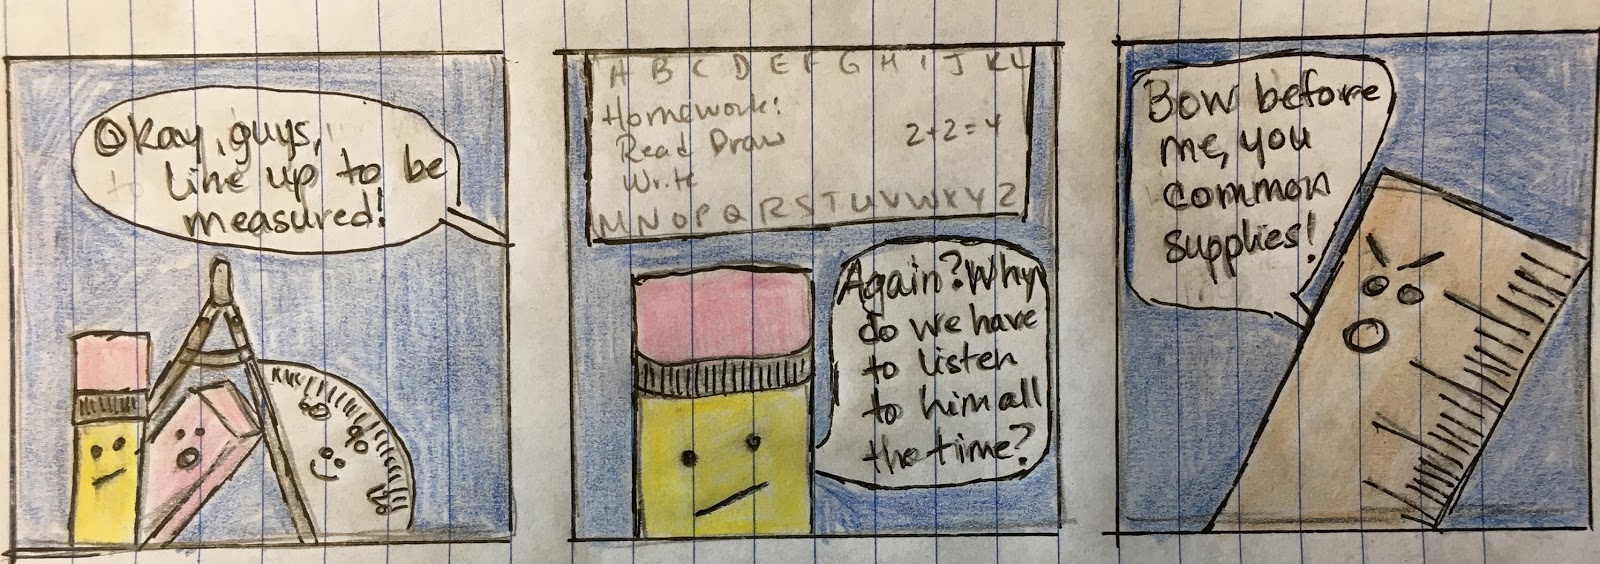 Okay, guys,
line up to be
measured!
A B C D E F G H I J K L
Homework:
Read Draw 2+2=4
Write
M N O P Q R S T U V W X Y Z
Again? Why
do we have
to listen
to him all
the time?
Bow before
me, you
common
supplies!